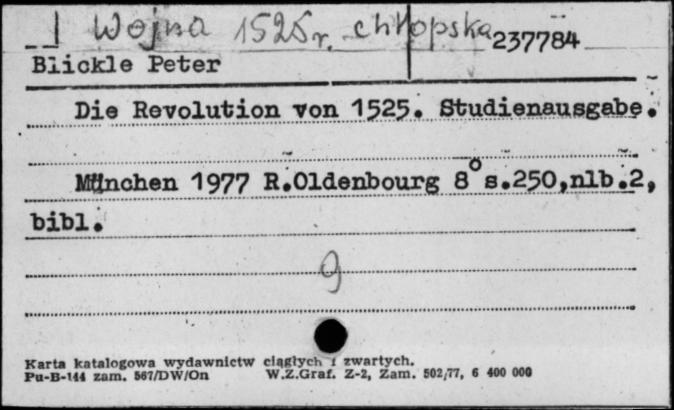 Wojna 1525 r. chłopska 237784
Blickle Peter
Die Revolution von 1525. Studienausgabe.
München 1977 R.Oldenbourg 8° s.250,nlb.2,
bibl.
9
Karta katalogowa wydawnictw ciągłych i zwartych.
Pu-B-144 zam. 567/DW/On W.Z.Graf. Z-2, Zam. 502/77, 6 400 000